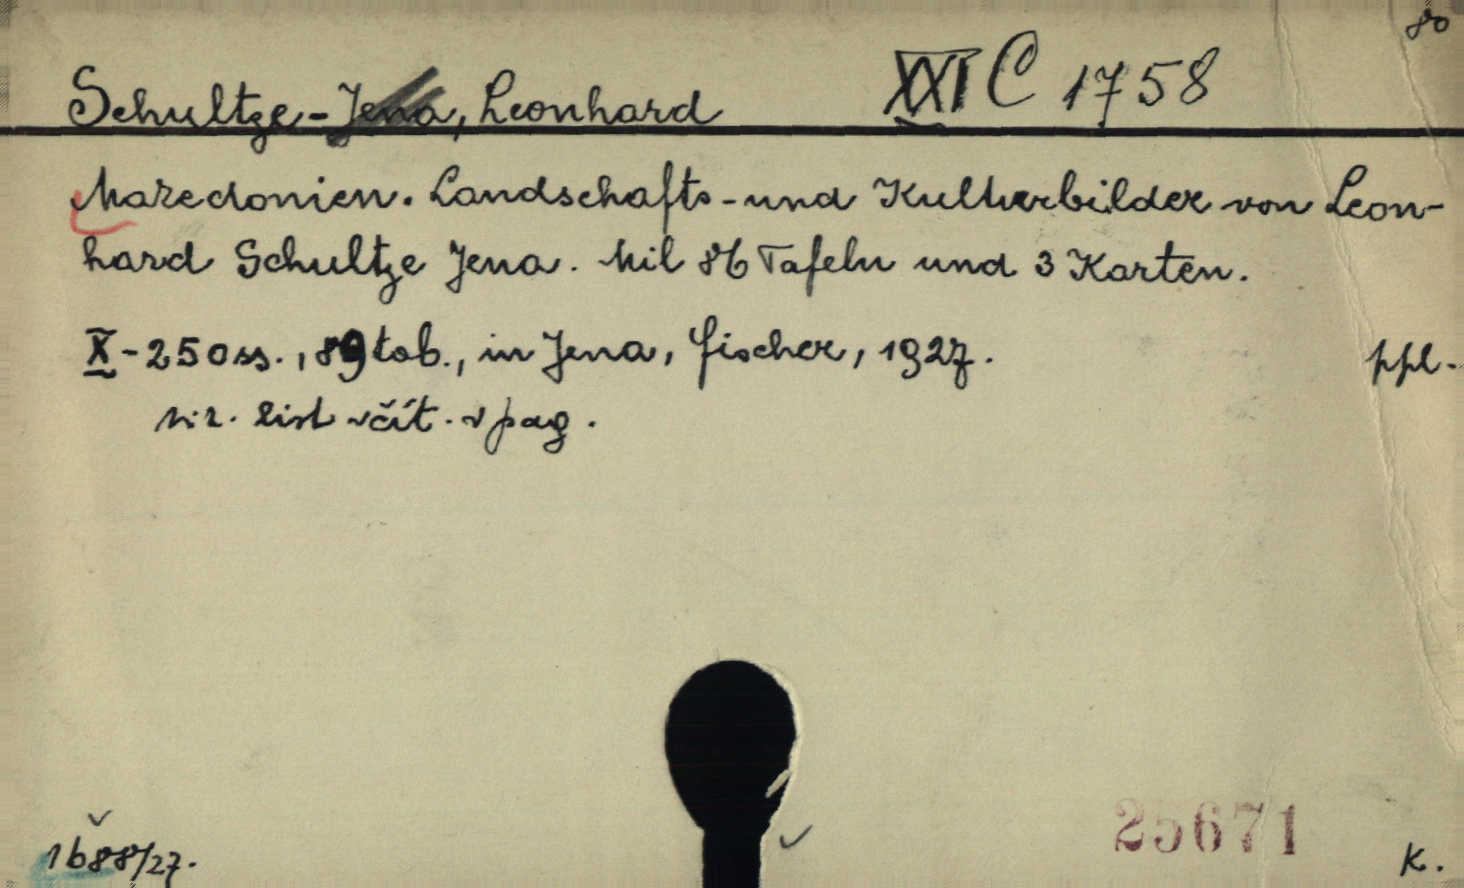 80
Schultze-Jena, Leonhard XXI C 1758
Mazedonien. Landschafts- und Kulturbilder von Leon-
hard Schultze Jena. Mit 86 Tafeln und 3 Karten.
X-250 ss., 89 tab., in Jena, Fischer, 1927. ppl.
list včít. v pag.
25671
1688/27. K.